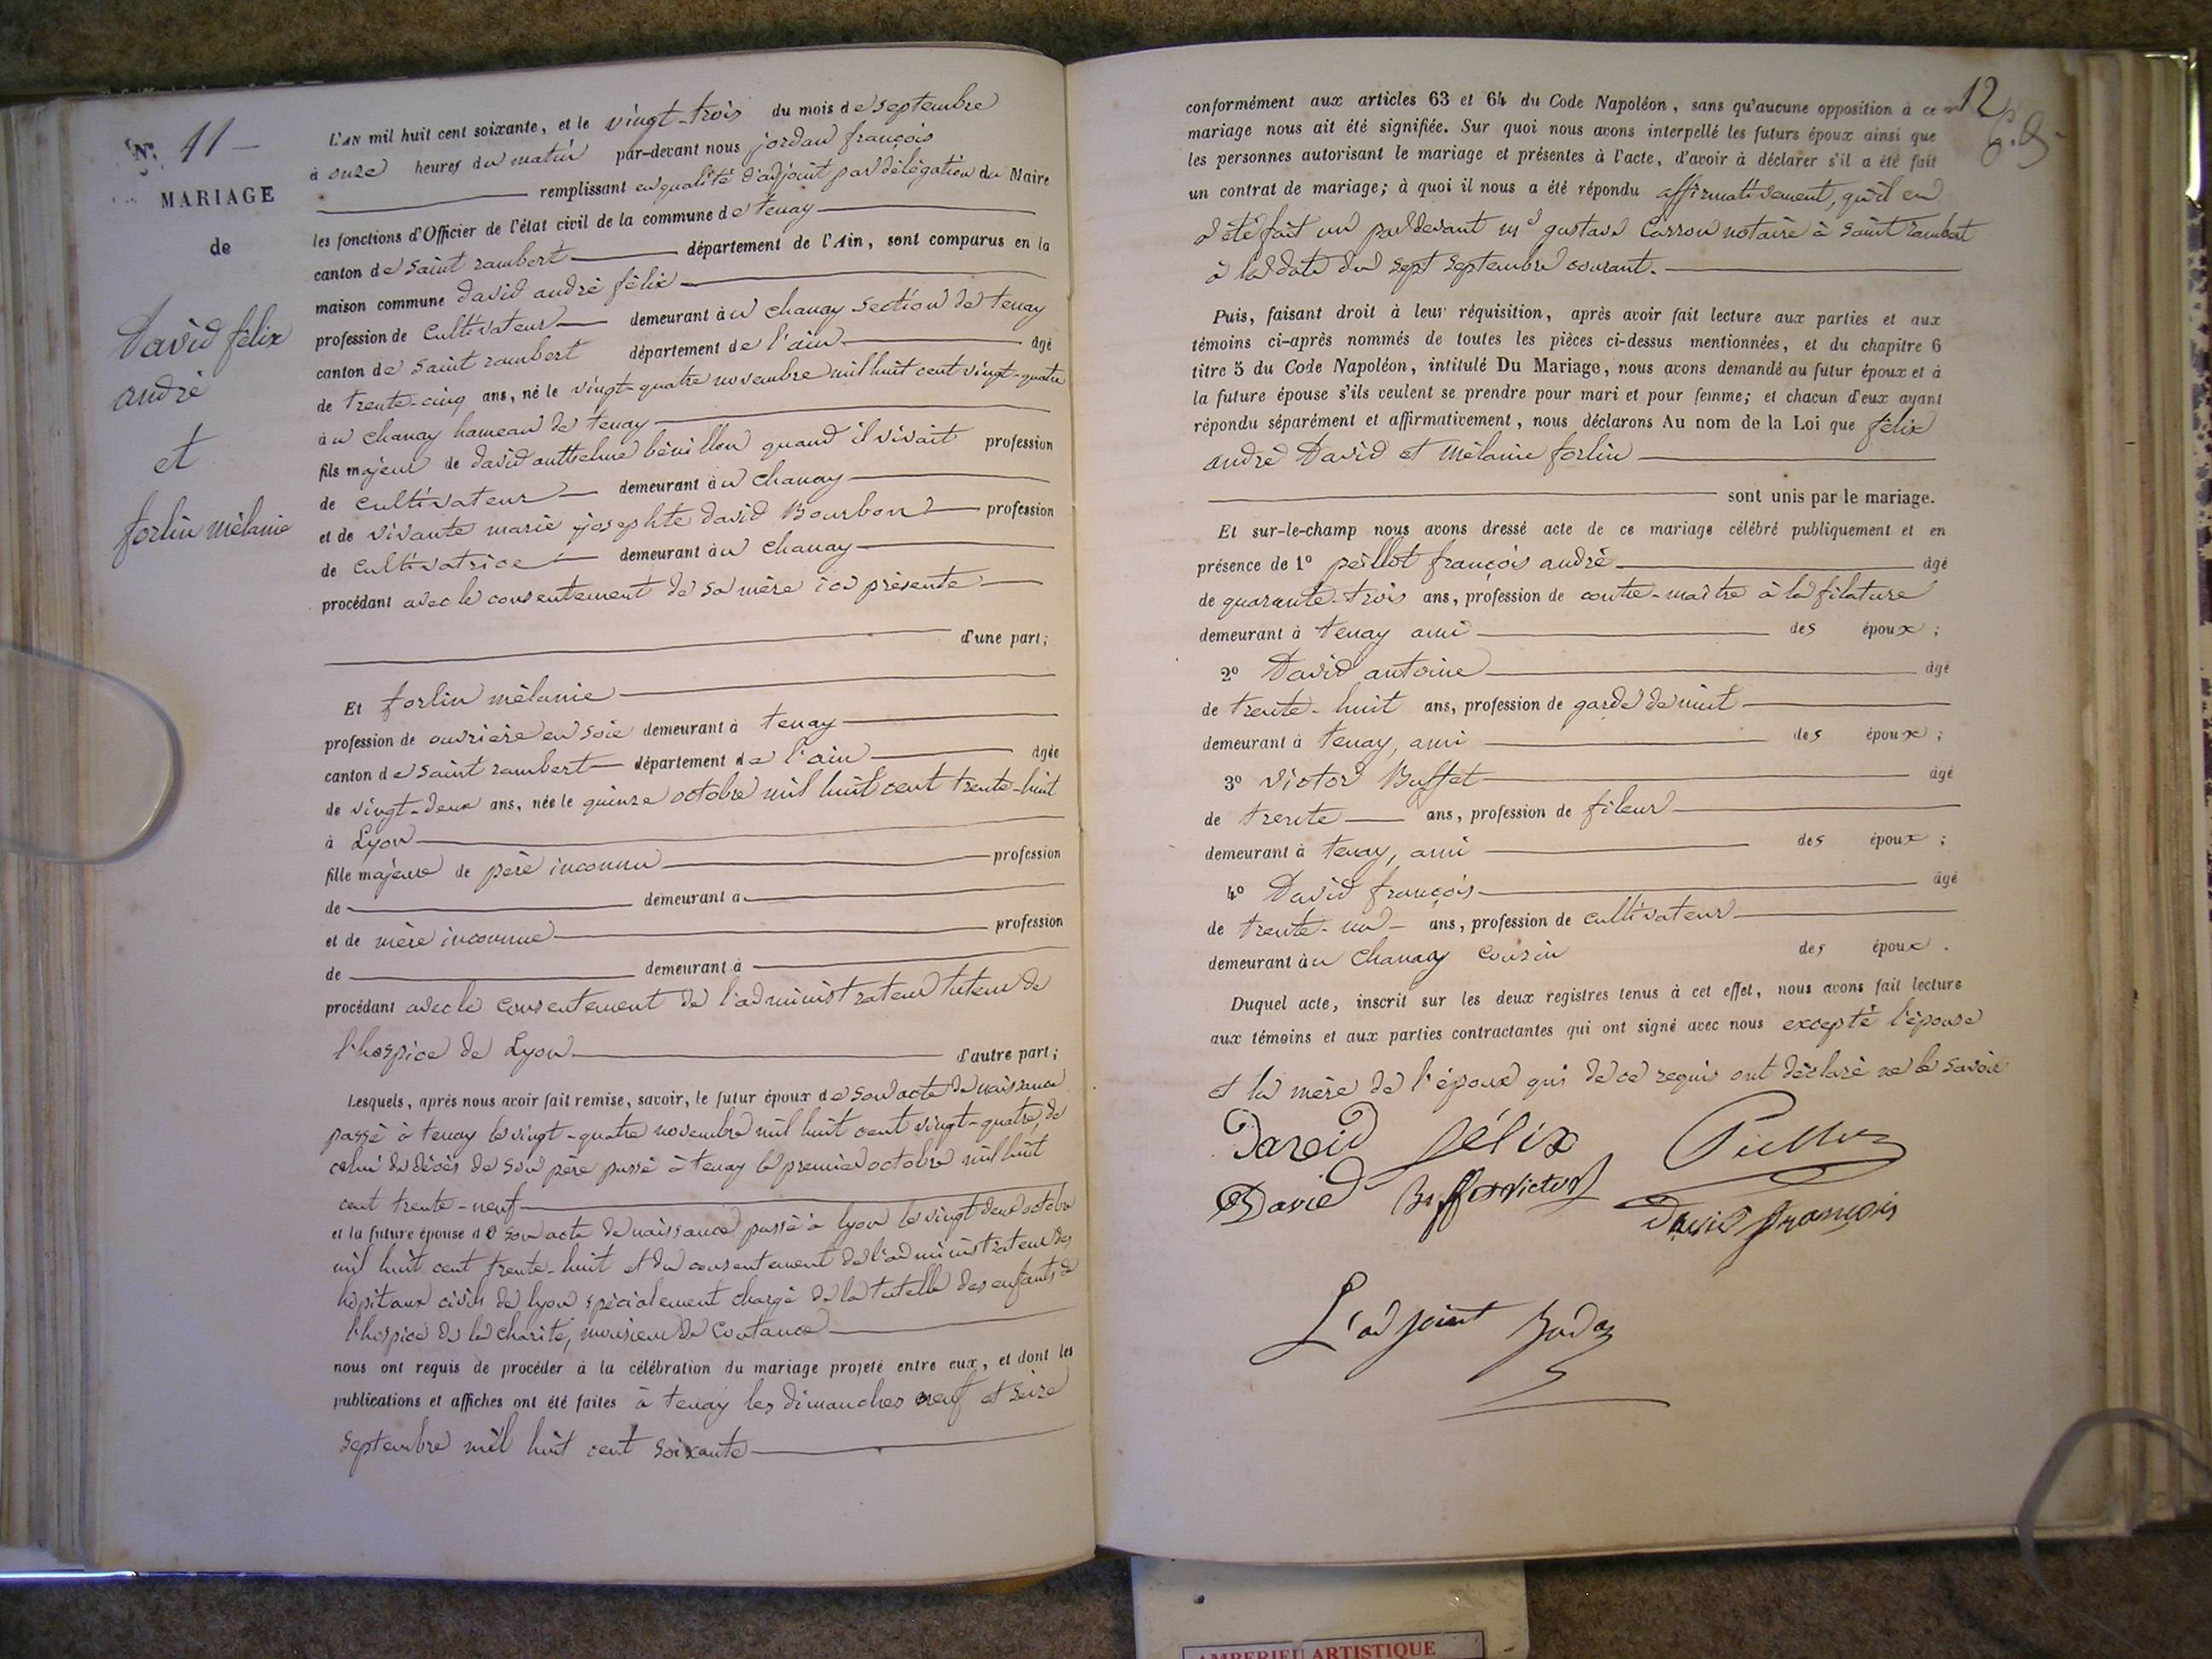 N° 11 —
MARIAGE
de
David félix
andré
et
forlin mélanie
L'AN mil huit cent soixante, et le vingt-trois du mois de septembre
à onze heures du matin par-devant nous jordan françois
remplissant en qualité d'adjoint par délégation du Maire
les fonctions d'Officier de l'état civil de la commune de tenay
canton de saint rambert département de l'Ain, sont comparus en la
maison commune david andré félix
profession de cultivateur demeurant à u chanay section de tenay
canton de saint rambert département de l'ain âgé
de trente-cinq ans, né le vingt-quatre novembre mil huit cent vingt-quatre
à u chanay hameau de tenay
fils majeur de david anthelme bénillon quand il vivait profession
de cultivateur demeurant à u chanay
et de vivante marie josephte david Bourbon profession
de cultivatrice demeurant à u chanay
procédant avec le consentement de sa mère ici présente
d'une part;
Et forlin mélanie
profession de ouvrière en soie demeurant à tenay
canton de saint rambert département de l'ain âgée
de vingt-deux ans, née le quinze octobre mil huit cent trente-huit
à Lyon
fille majeure de père inconnu profession
de demeurant à
et de mère inconnue profession
de demeurant à
procédant avec le consentement de l'administrateur tuteur de
l'hospice de Lyon d'autre part;
Lesquels, après nous avoir fait remise, savoir, le futur époux de son acte de naissance
passé à tenay le vingt-quatre novembre mil huit cent vingt-quatre, de
celui du décès de son père passé à tenay le premier octobre mil huit
cent trente-neuf
et la future épouse de son acte de naissance passé à lyon le vingt deux octobre
mil huit cent trente-huit et du consentement de l'administrateur des
hôpitaux civils de lyon spécialement chargé de la tutelle des enfants de
l'hospice de la charité, monsieur de Coutance
nous ont requis de procéder à la célébration du mariage projeté entre eux, et dont les
publications et affiches ont été faites à tenay les dimanches neuf et seize
septembre mil huit cent soixante
12
conformément aux articles 63 et 64 du Code Napoléon, sans qu'aucune opposition à ce
mariage nous ait été signifiée. Sur quoi nous avons interpellé les futurs époux ainsi que
les personnes autorisant le mariage et présentes à l'acte, d'avoir à déclarer s'il a été fait
un contrat de mariage; à quoi il nous a été répondu affirmativement, qu'il en
a été fait un par devant me gustave Carron notaire à saint rambert
à la date du sept septembre courant.
Puis, faisant droit à leur réquisition, après avoir fait lecture aux parties et aux
témoins ci-après nommés de toutes les pièces ci-dessus mentionnées, et du chapitre 6
titre 5 du Code Napoléon, intitulé Du Mariage, nous avons demandé au futur époux et à
la future épouse s'ils veulent se prendre pour mari et pour femme; et chacun d'eux ayant
répondu séparément et affirmativement, nous déclarons Au nom de la Loi que félix
andré David et Mélanie forlin
sont unis par le mariage.
Et sur-le-champ nous avons dressé acte de ce mariage célébré publiquement et en
présence de 1° peillot françois andré âgé
de quarante-trois ans, profession de contre-maître à la filature
demeurant à tenay ami des époux;
2° David antoine âgé
de trente-huit ans, profession de garde de nuit
demeurant à tenay, ami des époux;
3° victor Buffet âgé
de trente ans, profession de fileur
demeurant à tenay, ami des époux;
4° David françois âgé
de trente-un ans, profession de cultivateur
demeurant à u chanay cousin des époux.
Duquel acte, inscrit sur les deux registres tenus à cet effet, nous avons fait lecture
aux témoins et aux parties contractantes qui ont signé avec nous excepté l'épouse
et la mère de l'époux qui de ce requis ont déclaré ne le savoir
David félix
David Buffet victor David françois
L'adjoint
AMBERIEU ARTISTIQUE